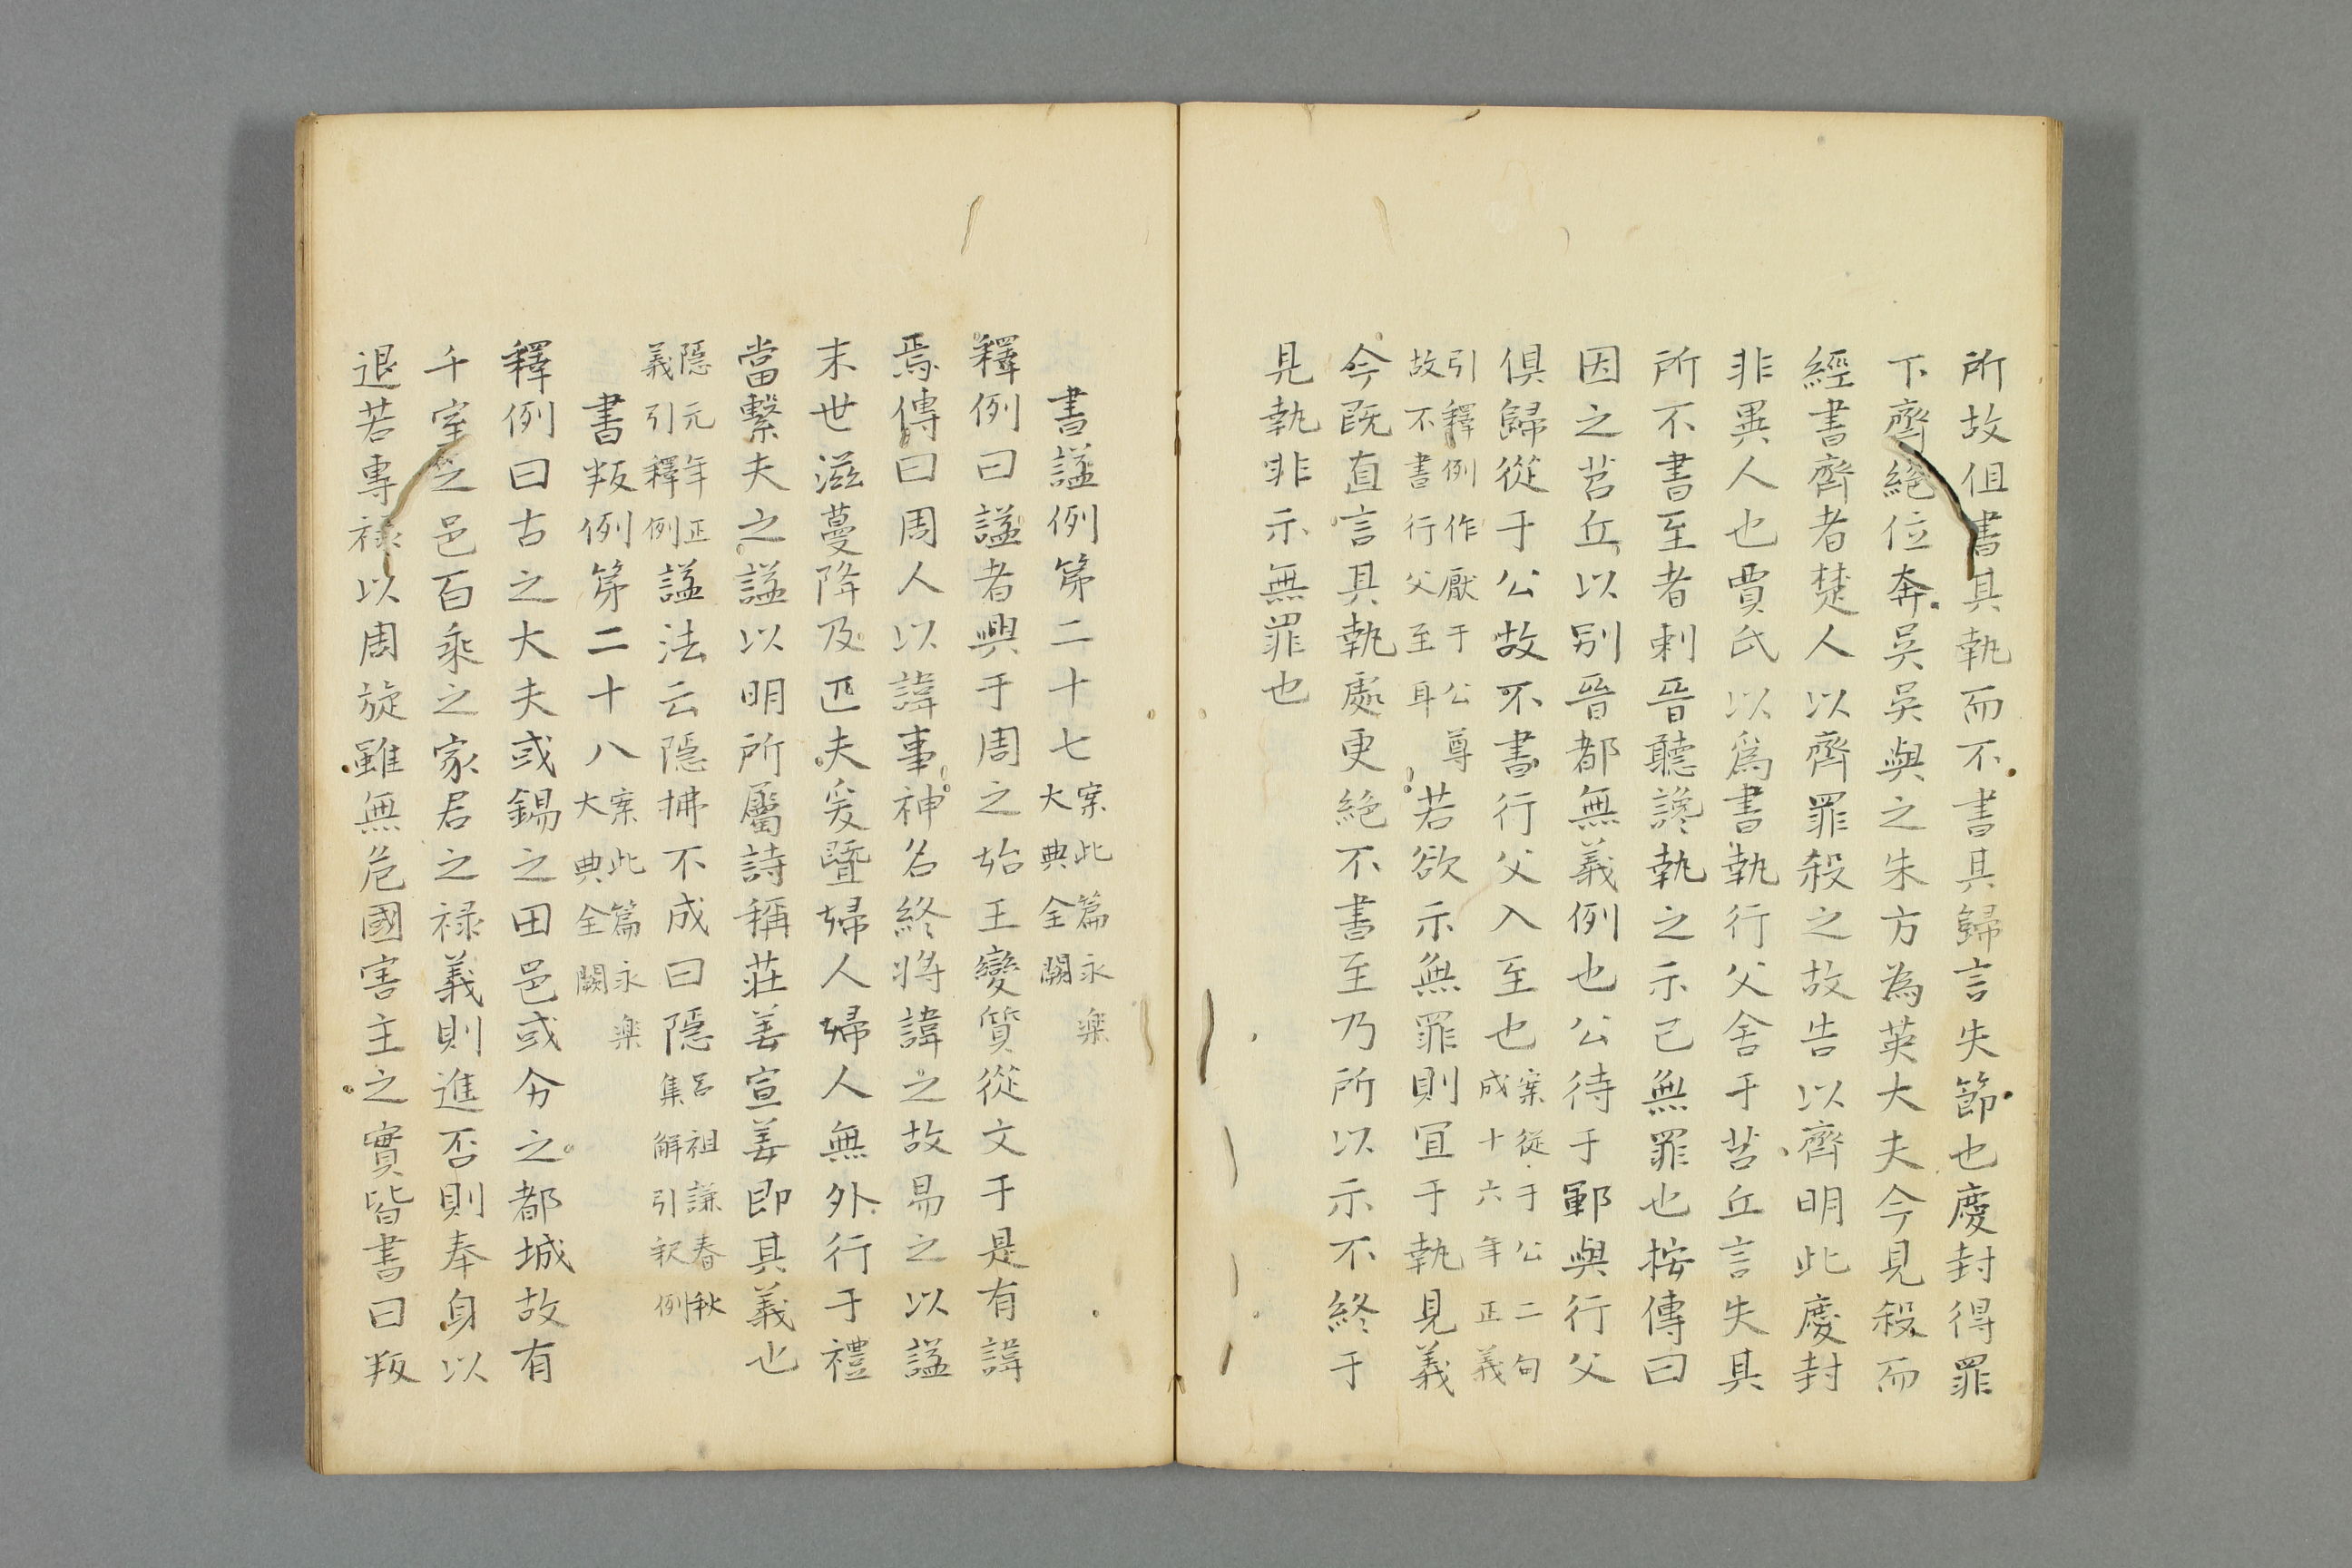 所故伹書其執而不書其歸言失節也慶封得罪
下齊絕位奔吳吳與之朱方為英大夫今見殺而
經書齊者楚人以齊罪殺之故告以齊明此慶封
非異人也賈氏以爲書執行父舍于苕丘言失其
所不書至者刺晉聽讒執之示己無罪也按傳曰
因之苕丘以別晉都無義例也公待于鄆與行父
俱歸從于公故不書行父入至也案從于公二句
成十六年正義
引釋例作厭于公尊
故不書行父至耳若欲示無罪則宜于執見義
今既直言其執處更絕不書至乃所以示不終于
見執非示無罪也
書謚例第二十七案此篇永楽
大典全闕
釋例曰謚者興于周之始王變質從文于是有諱
焉傳曰周人以諱事神名終將諱之故易之以謚
末世滋蔓降及匹夫爰暨婦人婦人無外行于禮
當繫夫之謚以明所屬詩稱莊姜宣姜即其義也
隱元年正
義引釋例謚法云隱拂不成曰隱呂祖謙春秋
集解引釈例
書叛例第二十八案此篇永楽
大典全闕
釋例曰古之大夫或錫之田邑或分之都城故有
千室之邑百乘之家君之禄義則進否則奉身以
退若專禄以周旋雖無危國害主之實皆書曰叛